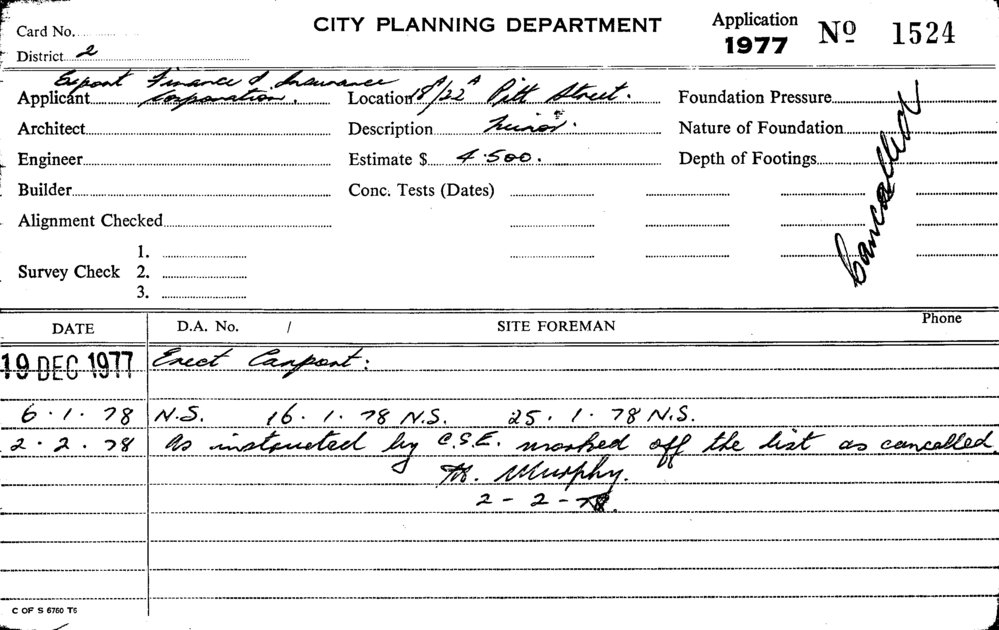 Card No.
CITY PLANNING DEPARTMENT
Application 1977 Nº 1524
District 2
Applicant Export Finance & Insurance Corporation.
Location 18/22 A Pitt Street.
Foundation Pressure
Architect
Description Minor.
Nature of Foundation
Engineer
Estimate $ 4.500.
Depth of Footings
Builder
Conc. Tests (Dates)
Cancelled
Alignment Checked
Survey Check 1.
2.
3.
DATE D.A. No. / SITE FOREMAN Phone
19 DEC 1977 Erect Carport:
6.1.78 N.S. 16.1.78 N.S. 25.1.78 N.S.
2.2.78 As instructed by C.S.E. marked off the list as cancelled.
M. Murphy.
2-2-78.
C OF S 6760 T6